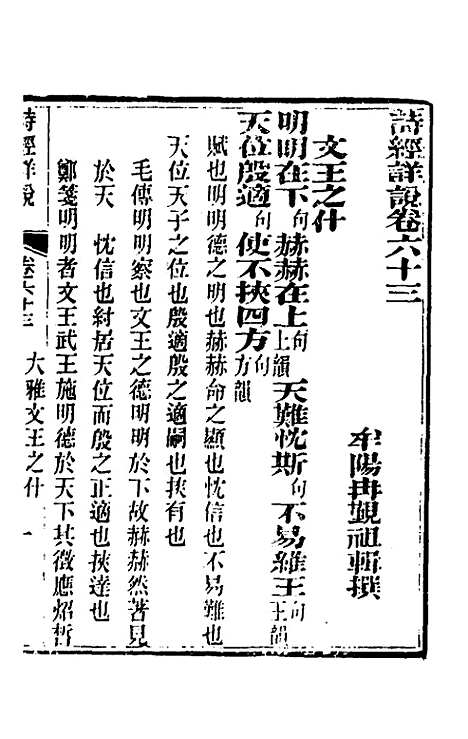 詩經詳說卷六十三
牟陽冉覲祖輯撰
文王之什
明明在下句赫赫在上句上韻天難忱斯句不易維王句王韻
天位殷適句使不挾四方句方韻
賦也明明德之明也赫赫命之顯也忱信也不易難也
天位天子之位也殷適殷之適嗣也挾有也
毛傳明明察也文王之德明明於下故赫赫然著見
於天 忱信也紂居天位而殷之正適也挾達也
鄭箋明明者文王武王施明德於天下其徵應炤晢
詩經詳說 卷六十三 大雅文王之什 一